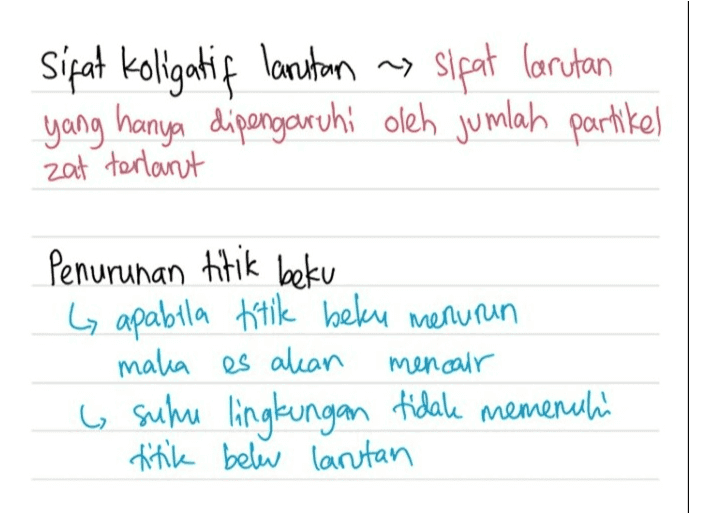 Sifat koligatif larutan ~> sifat larutan
yang hanya dipengaruhi oleh jumlah partikel
zat terlarut
Penurunan titik beku
↳ apabila titik beku menurun
maka es akan mencair
↳ suhu lingkungan tidak memenuhi
titik beku larutan